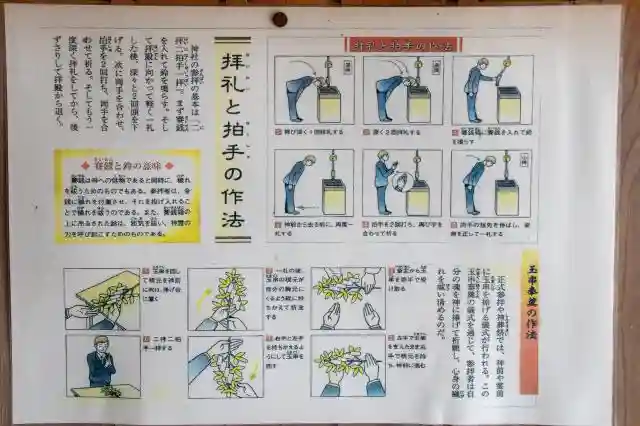 拝礼と拍手の作法
神社の参拝の基本は「二
拝二拍手一拝」。まず賽銭
を入れて鈴を鳴らす。そし
て拝殿に向かって軽く一礼
した後、深々と2回頭を下
げる。次に両手を合わせ、
拍手を2回打ち、両手を合
わせて祈る。そしてもう一
度深く拝礼をしてから、後
ずさりして拝殿から退く。
賽銭と鈴の意味
賽銭は神への供物であると同時に、穢れ
を祓うためのものでもある。参拝者は、金
銭に穢れを付着させ、それを投げ入れるこ
とで穢れを祓うのである。また、賽銭箱の
上に吊るされた鈴は、邪気を祓い、神霊の
力を呼び起こすためのものである。
拝礼と拍手の作法
賽銭箱に賽銭を入れて鈴
を鳴らす
深く2回拝礼する
再び深く1回拝礼する
拍手の指先を伸ばし、姿
勢を正して一礼する
拍手を2回打ち、再び手を
合わせて祈る
神前から去る前に、再度一
礼する
玉串奉奠の作法
正式参拝や神葬祭では、神前や霊前
に玉串を捧げる儀式が行われる。この
玉串奉奠の儀式を通じて、参拝者は自
分の魂を神に捧げて祈願し、心身の穢
れを祓い清めるのだ。
神主から玉
串を両手で受
け取る
左手で玉串
を支えたまま右
手で根元を持
ち、神前に進む
一礼の後、
玉串の根元が
自分の胸元に
くるように縦に持
ちかえて祈念す
る
右手と左手
を持ちかえるよ
うにして玉串を
回す
玉串を回し
て根元を神前
に向け、捧げ台
に置く
二拝二拍
手一拝する